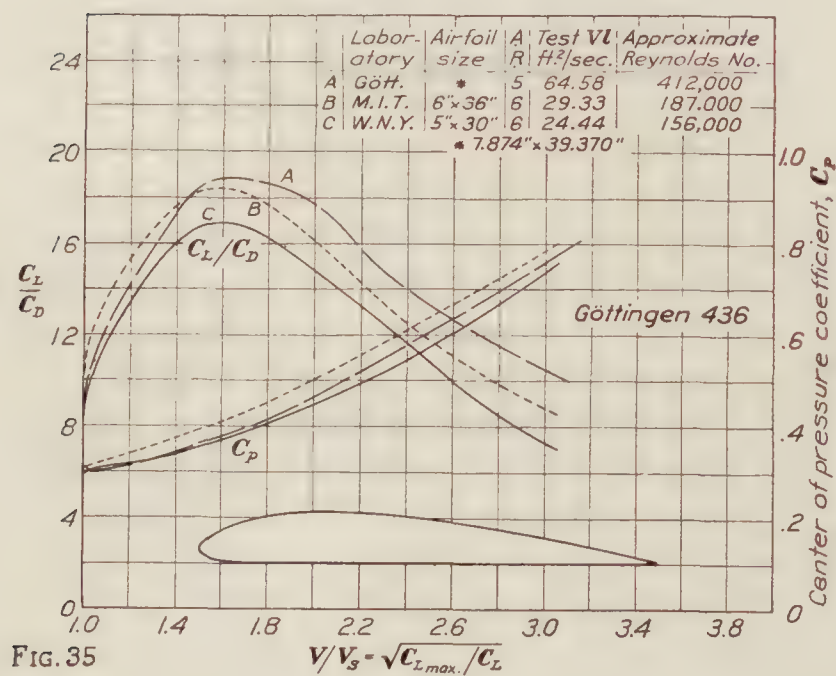 Labor- Airfoil A Test Vl Approximate
atory size R ft²/sec. Reynolds No.
A Gött. * 5 64.58 412,000
B M.I.T. 6"×36" 6 29.33 187.000
C W.N.Y. 5"×30" 6 24.44 156,000
* 7.874"×39.370"
24
20
16
12
8
4
0
C_L
C_D
A
B
C
C_L/C_D
C_P
Göttingen 436
1.0
.8
.6
.4
.2
0
Center of pressure coefficient, C_P
1.0 1.4 1.8 2.2 2.6 3.0 3.4 3.8
V/V_S = √C_Lmax./C_L
FIG. 35